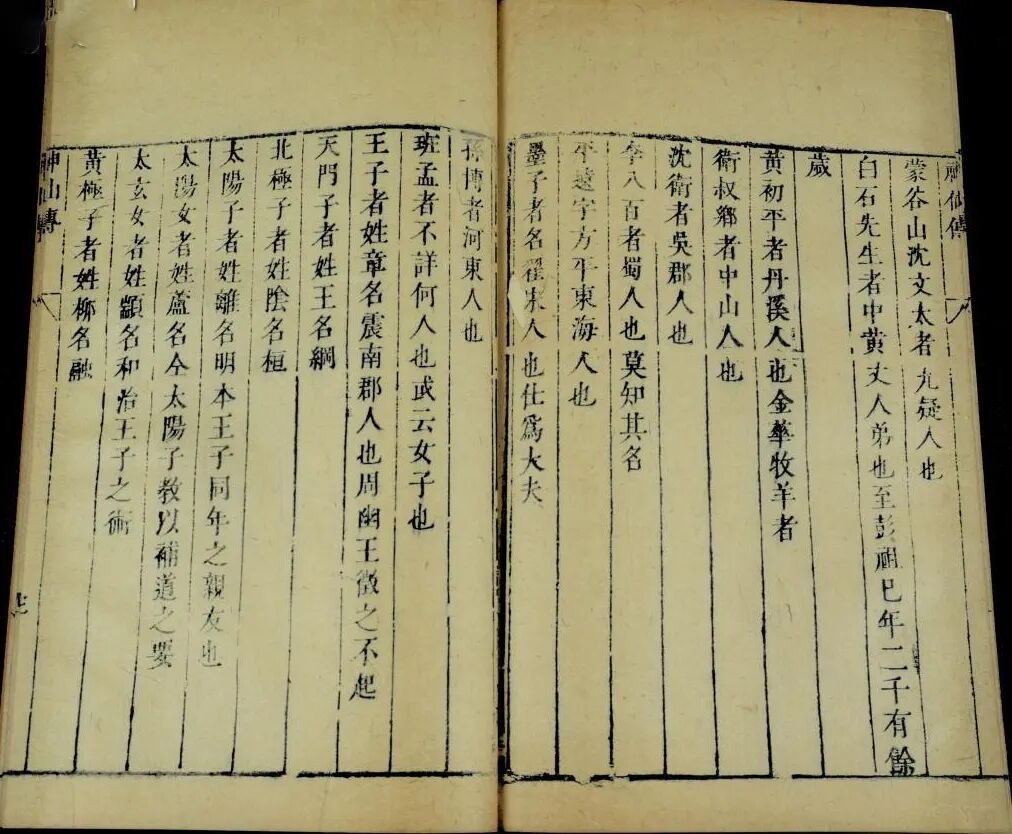 神仙傳
蒙谷山沈文太者九疑人也
白石先生者中黄丈人弟也至彭祖巳年二千有餘
歲
黄初平者丹溪人也金華牧羊者
衛叔鄉者中山人也
沈衛者吳郡人也
李八百者蜀人也莫知其名
平遠字方平東海人也
墨子者名翟宋人也仕爲大夫
孫博者河東人也
班孟者不詳何人也或云女子也
王子者姓章名震南郡人也周幽王徵之不起
天門子者姓王名綱
北極子者姓陰名桓
太陽子者姓離名明本王子同年之親友也
太陽女者姓盧名全太陽子教以補道之要
太玄女者姓顓名和治王子之術
黄極子者姓栁名融
神仙傳